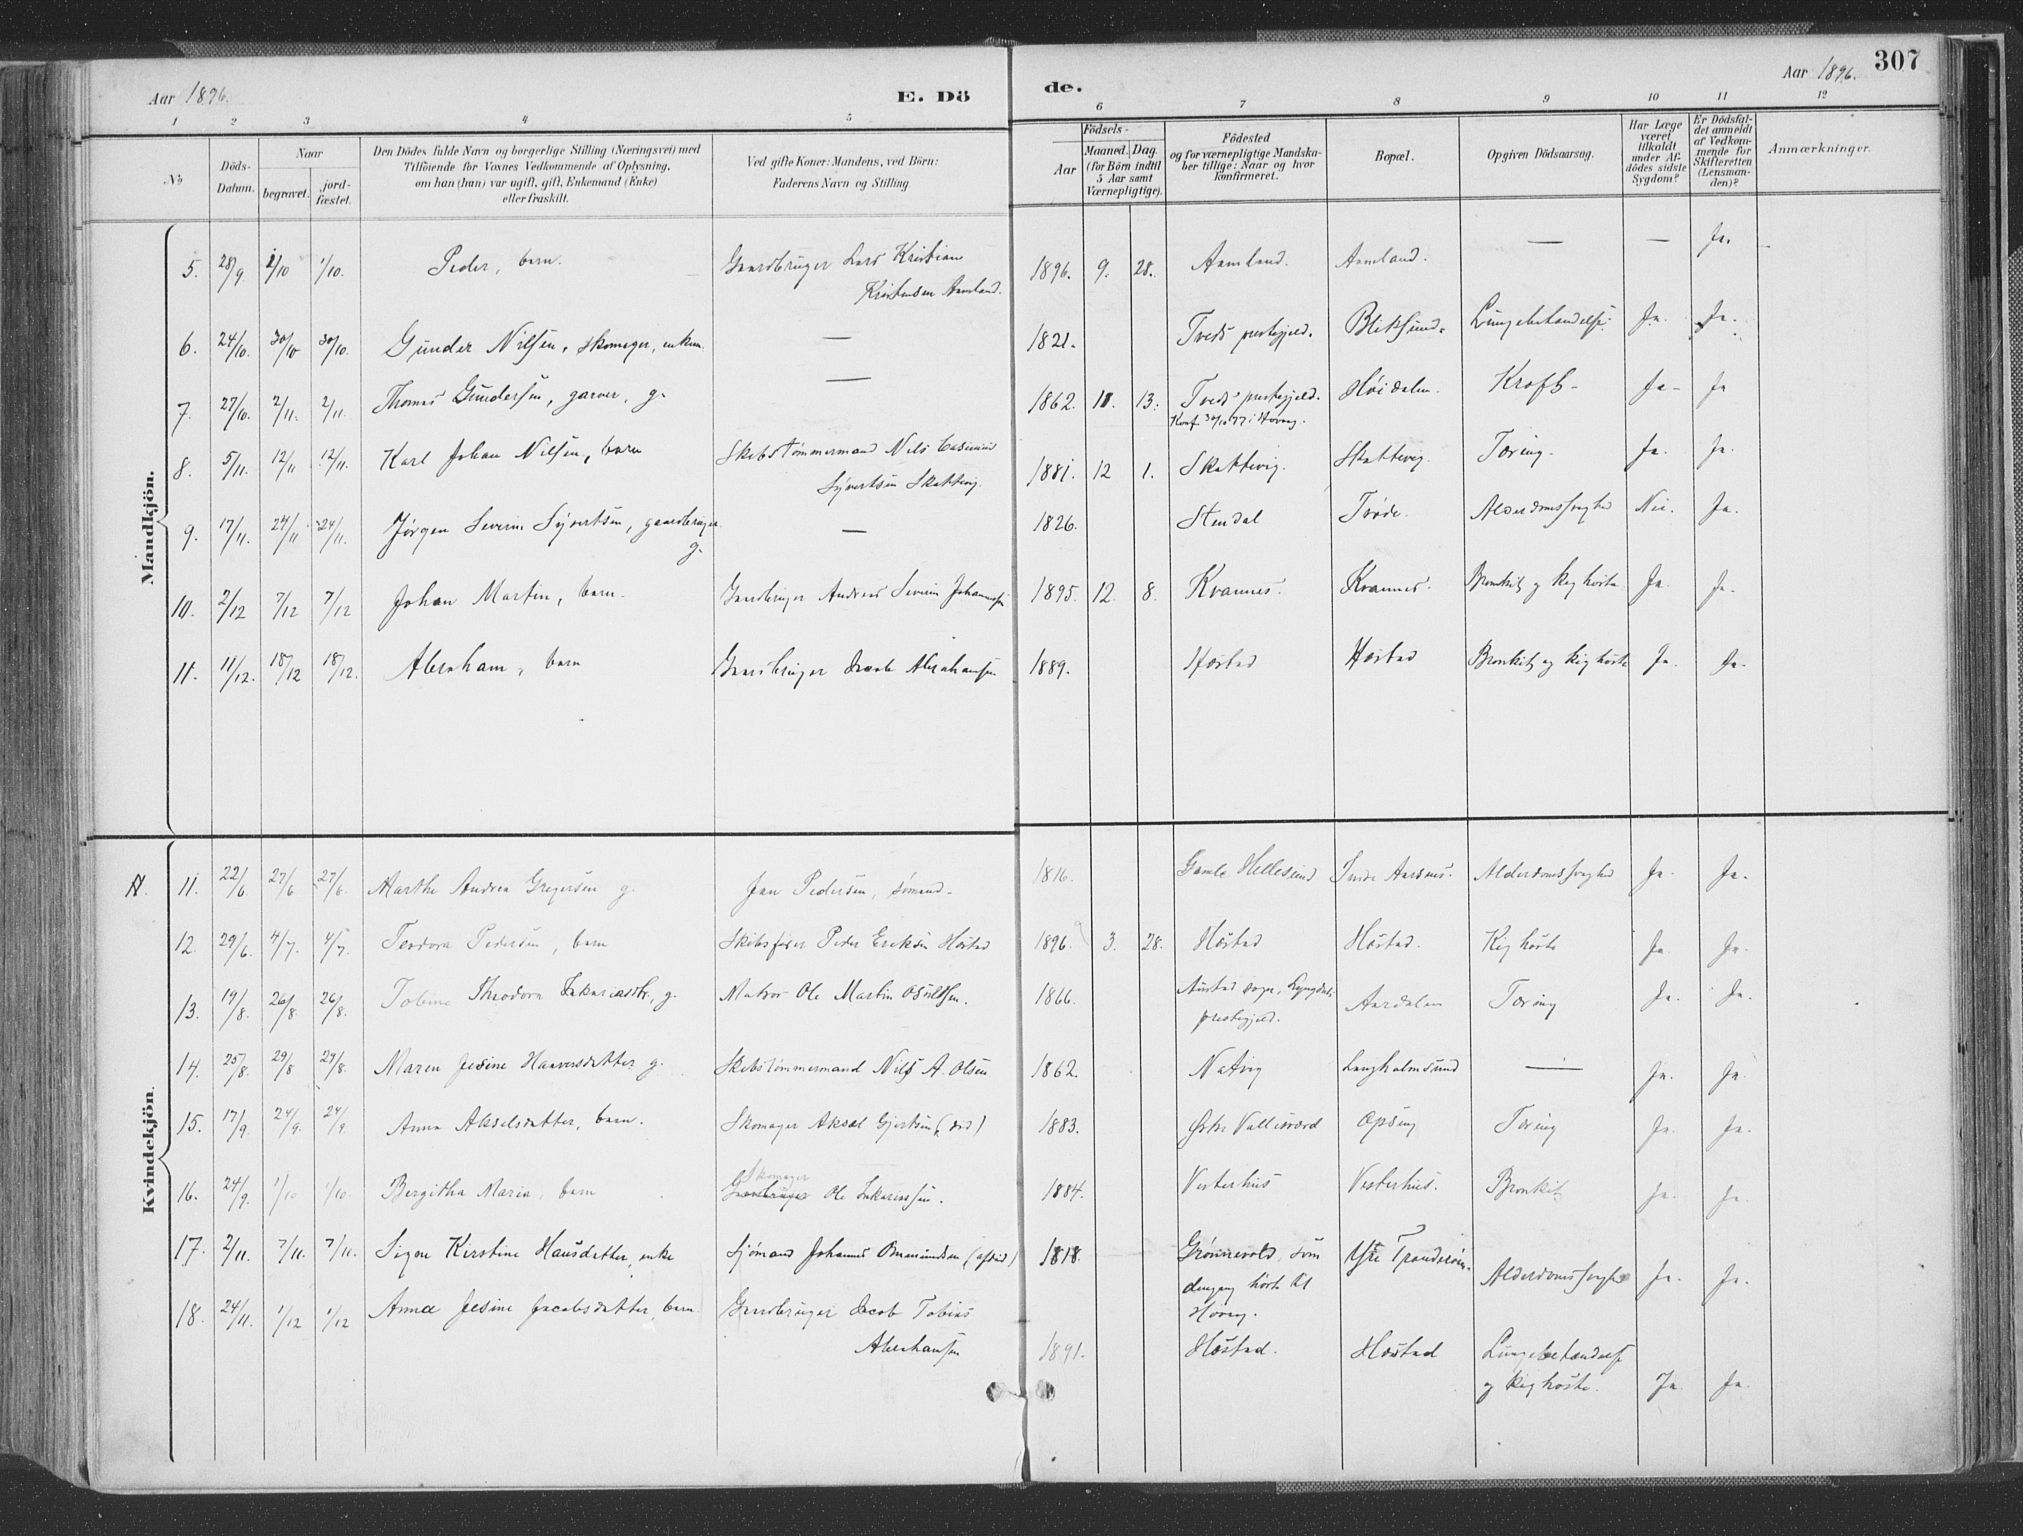 Aar 1896.
E. Dö
de.
Aar 1896.
307
1 2 3 4 5 6 7 8 9 10 11 12
№
Döds-
Datum.
Naar
begravet.
jord-
fæstet.
Den Dödes fulde Navn og borgerlige Stilling (Næringsvei) med
Tilföiende for Voxnes Vedkommende af Oplysning,
om han (hun) var ugift, gift, Enkemand (Enke)
eller fraskilt.
Ved gifte Koner: Mandens, ved Börn:
Faderens Navn og Stilling
Födsels-
Aar
Maaned. Dag.
(for Börn indtil
5 Aar samt
Værnepligtige).
Födested
og for værnepligtige Mandska-
ber tillige: Naar og hvor
konfirmeret.
Bopæl.
Opgiven Dödsaarsag.
Har Læge
været
tilkaldt
under Af-
dödes sidste
Sygdom?
Er Dödsfal-
det anmeldt
af Vedkom-
mende for
Skifteretten
(Lensman-
den)?
Anmærkninger.
Mandkjön.
5. 28/9. 1/10 1/10. Peder, barn. Gaardbruger Lars Kristian 1896. 9. 28. Aamland. Aamland. — — Ja.
Kristensen Aamland.
6. 24/10. 30/10 30/10. Gunder Nilsen, skomager, enkem. — 1821. Tveds prestegjeld. Bliksund. Lungebetændelse. Ja. Ja.
7. 27/10. 2/11. 2/11. Thomas Gundersen, garver, g. — 1862. 11. 13. Tveds prestegjeld. Høidalen. Kræft Ja Ja
Konf. 30/10 77 i Høvåg.
8. 5/11. 12/11 12/11. Karl Johan Nilsen, barn Skibstømmermand Nils Casimir 1881. 12 1. Skattevig. Skattevig. Tæring. Ja. Ja.
Syvertsen Skattevig.
9. 17/11. 24/11 24/11. Jørgen Severin Syvertsen, gaardbruger g. — 1826. Stendal Trøde. Alderdomssvaghed Nei. Ja.
10. 2/12 7/12 7/12 Johan Martin, barn. Gaardbruger Andreas Severin Johannessen 1895. 12. 8. Kvannes. Kvannes. Bronkit og kighoste Ja. Ja.
11. 11/12. 18/12 18/12. Abraham, barn Gaardbruger Jacob Abrahamsen 1889. Hæstad Hæstad Bronkit og kighoste Ja. Ja.
Kvindekjön.
N. 11. 22/6 27/6 27/6. Marthe Andrea Gregersen g. Jan Pedersen, sømand. 1816. Gamle Hellesund Indre Aarsnes. Alderdomssvaghed Ja. Ja.
12. 29/6. 4/7. 4/7. Teodora Pedersen, barn Skibsfører Peder Eriksen Hæstad 1896. 3. 28. Hæstad Hæstad. Kighoste Ja. Ja.
13. 19/8. 26/8 26/8. Tobine Theodora Zakariasdtr., g. Matros Ole Martin Osuldsen. 1866. Austad sogn, Lyngdals Aardalen Tæring Ja. Ja.
prestegjeld.
14. 25/8. 29/8 29/8. Maren Jesine Haaversdatter g. Skibstømmermand Nils A. Olsen 1862. Natvig Langholmsund — Ja. Ja.
15. 17/9. 24/9. 24/9 Anna Akselsdatter, barn. Skomager Aksel Gjertsen (død) 1883. Østre Vallesværd Opsing Tæring Ja. Ja.
Skomager
16. 24/9. 1/10 1/10. Bergitha Maria, barn Gaardbruger Ole Zakariassen. 1884. Vesterhus Vesterhus. Bronkit Ja. Ja.
17. 2/11. 7/11. 7/11. Signe Kirstine Hansdatter, enke Sjømand Johannes Omundsen (afdød) 1818. Grønnevold, som Ytre Trandeøen. Alderdomssvaghed Ja. Ja.
dengang hørte til
Høvåg.
18. 24/11. 1/12 1/12 Anna Jesine Jacobsdatter, barn Gaardbruger Jacob Tobias
Abrahamsen 1891. Hæstad. Hæstad Lungebetændelse
og kighoste. Ja. Ja.